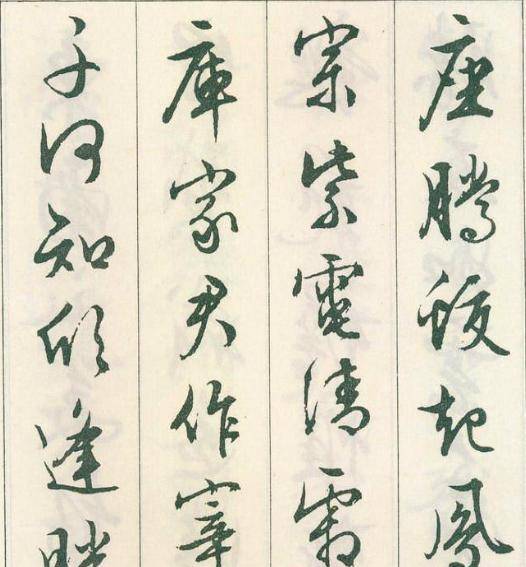 座騰蛟起鳳
宗紫電清霜
庫家君作宰
子何知躬逢